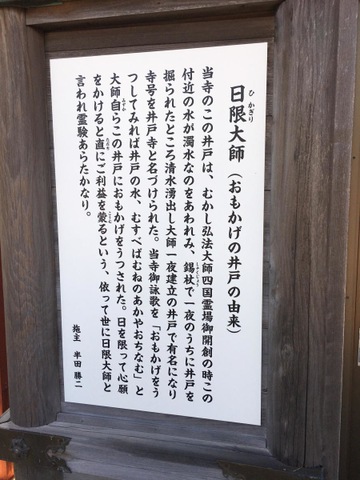 日限大師（おもかげの井戸の由来）
ひかぎり
当寺のこの井戸は、むかし弘法大師四国霊場御開創の時この
付近の水が濁水なのをあわれみ、錫杖で一夜のうちに井戸を
掘られたところ清水湧出し大師一夜建立の井戸で有名になり
寺号を井戸寺と名づけられた。当寺御詠歌を「おもかげをう
つしてみれば井戸の水、むすべばむねのあかやおちなむ」と
大師自らこの井戸におもかげをうつされた。日を限って心願
をかけると直にご利益を蒙るという、依って世に日限大師と
言われ霊験あらたかなり。
施主　半田　勝二